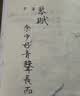 琴賦
余少好音聲長而